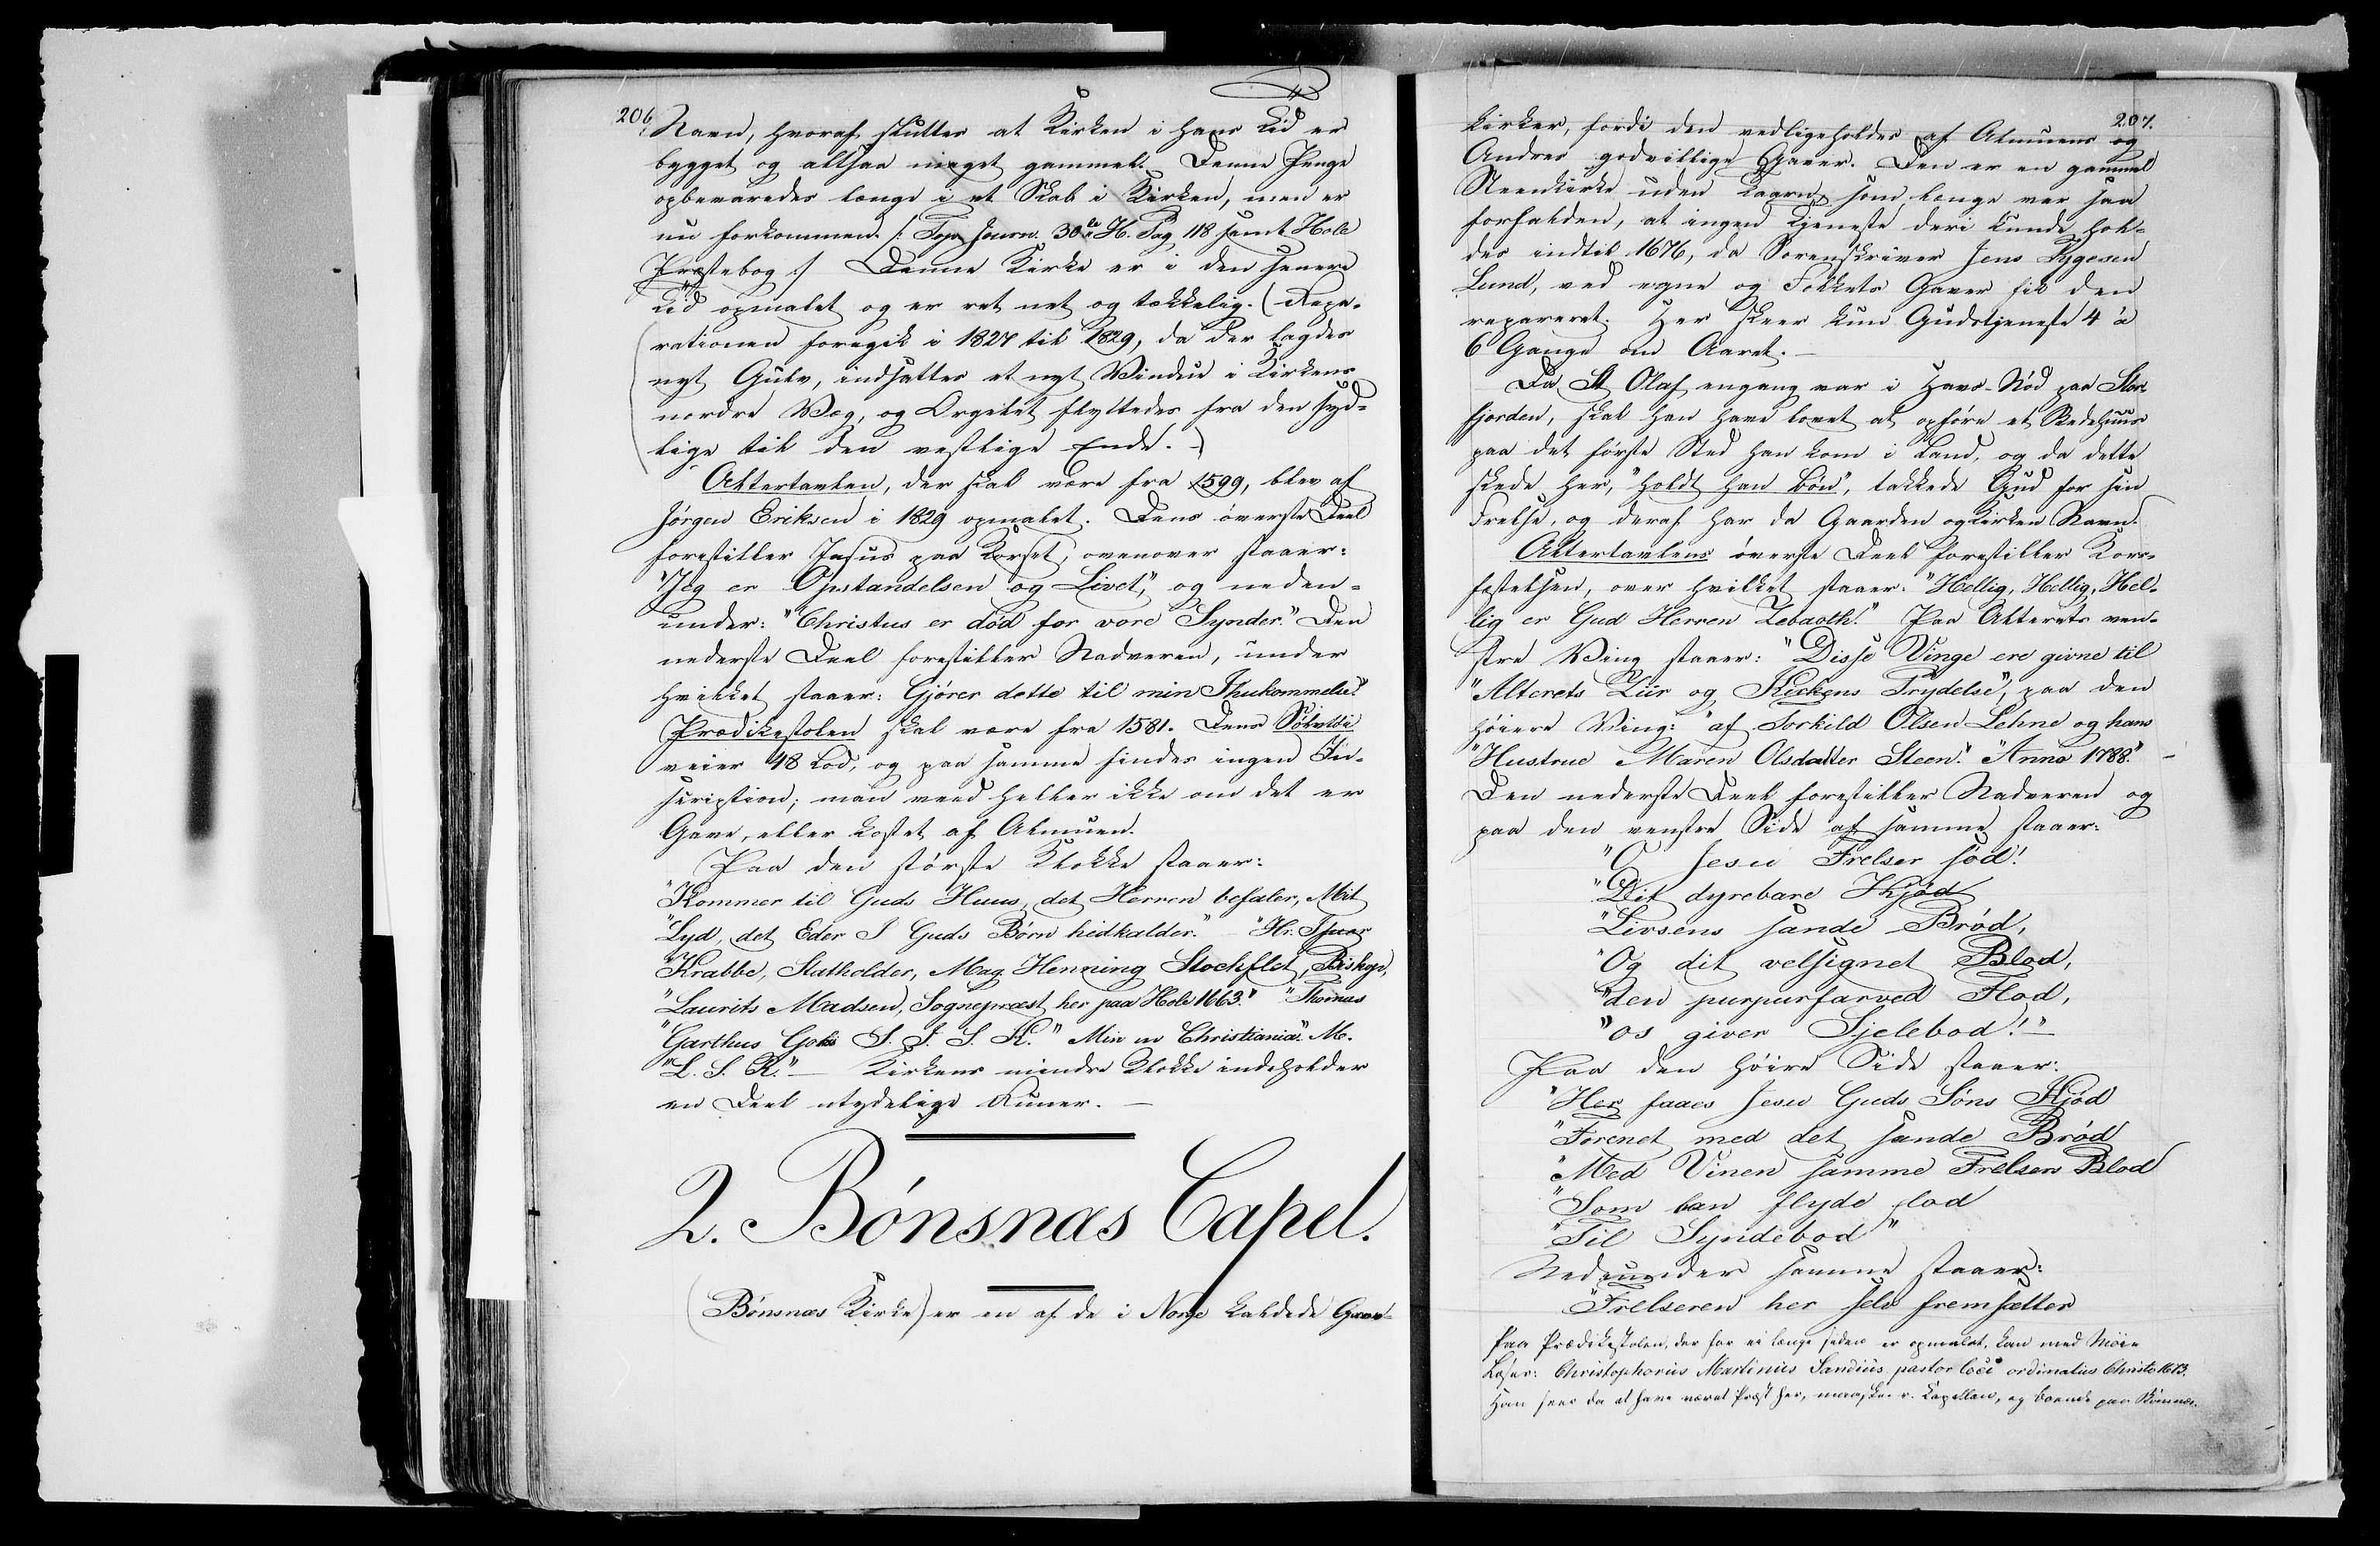 206.
Navn, hvoraf sluttes at Kirken i hans Tid er
bygget og altsaa meget gammel. Denne Penge
opbevaredes længe i et Skab i Kirken, men er
nu forkommen. /: Top. Journ. 30te H. Pag 118 samt Hole
Præstebog :/ Denne Kirke er i den senere
Tid opmalet og er ret net og tækkelig. (Repa-
rationen foregik i 1827 til 1829, da der lagdes
nyt Gulv, indsattes et nyt Vindue i Kirkens
nordre Væg, og Orgelet flyttedes fra den syd-
lige til den vestlige Ende. -)
Altertavlen, der skal være fra 1599, blev af
Jörgen Eriksen i 1829 opmalet. Dens överste Deel
forestiller Jesus paa Korset, ovenover staaer:
"Jeg er Opstandelsen og Livet", og neden-
under: "Christus er död for vore Synder." Den
nederste Deel forestiller Nadveren, under
hvilket staaer: Gjörer dette til min Ihukommelse."
Prædikestolen skal være fra 1581. Dens Sölvtöi
veier 48 Lod, og paa samme findes ingen In-
scription; man veed heller ikke om det er
Gave, eller kostet af Almuen.
Paa den störste Klokke staaer:
"Kommer til Guds Huus, det Herren befaler, Mit
"Lyd, det Eder I Guds Börn hidkalder." "Hr. Ifuar
"Krabbe, Statholder, Mag. Henning Stockflet, Biskop,
"Laurits Madsen, Sognepræst her paa Hole 1663." "Thomas
"Garthus S. I. S. K." Min in Christiania". M.
"L. S. R." — Kirkens mindre Klokke indeholder
en Deel utydelige Runer. —
2. Bónsnæs Capel.
(Bónsnæs Kirke) er en af de i Norge kaldede Gave-
207.
kirker, fordi den vedligeholdes af Almuens og
Andres godvillige Gaver. Den er en gammel
Steenkirke uden Taarn, som længe var saa
forfalden, at ingen Tjeneste deri kunde hol-
des indtil 1676, da Sorenskriver Jens Tygesen
Lund, ved egne og Folkets Gaver fik den
repareret. Her skeer kun Gudstjeneste 4 à
6 Gange om Aaret. —
Da St Olaf engang var i Havs-Nöd paa Stor-
fjorden, skal han have lovet at opföre et Bedehuus
paa det förste Sted han kom i Land, og da dette
skede her, "holdt han Bön", takkede Gud for sin
Frelse, og deraf har da Gaarden og Kirken Navn.
Altertavlens överste Deel forestiller Kors-
festelsen, over hvilket staaer: "Hellig, Hellig, Hel-
lig er Gud Herren Zebaoth." Paa Alterets ven-
stre Ving staaer: "Disse Vinge ere givne til
"Alterets Ziir og Kirkens Prydelse", paa den
höiere Ving: "af Torkild Olsen Lehne og hans
"Hustrue Maren Olsdatter Steen." "Anno 1788." —
Den nederste Deel forestiller Nadveren og
paa den venstre Side af samme staaer:
"O Jesu Frelser söd!
"Dit dyrebare Kjød
"Livsens sande Bröd,
"Og dit velsignet Blod,
"den purpurfarved Flod,
"os giver Sjelebod!" —
Paa den höire Side staaer:
"Her faaes Jesu Guds Söns Kjöd
"Forenet med det sande Bröd
"Med Vinen samme Frelsers Blod
"Som han flyde lod
"Til Syndebod"
Nedenunder samme staaer:
"Frelseren her selv fremsætter
Paa Prædikestolen, der for ei længe siden er opmalet, kan med Möie
læses: Christophorus Martinius Sandius pastor loci ordinatus Christo 1613.
Han sees da at have været Præst her, maaskee r. Capellan, og boende paa Bönsnæs.